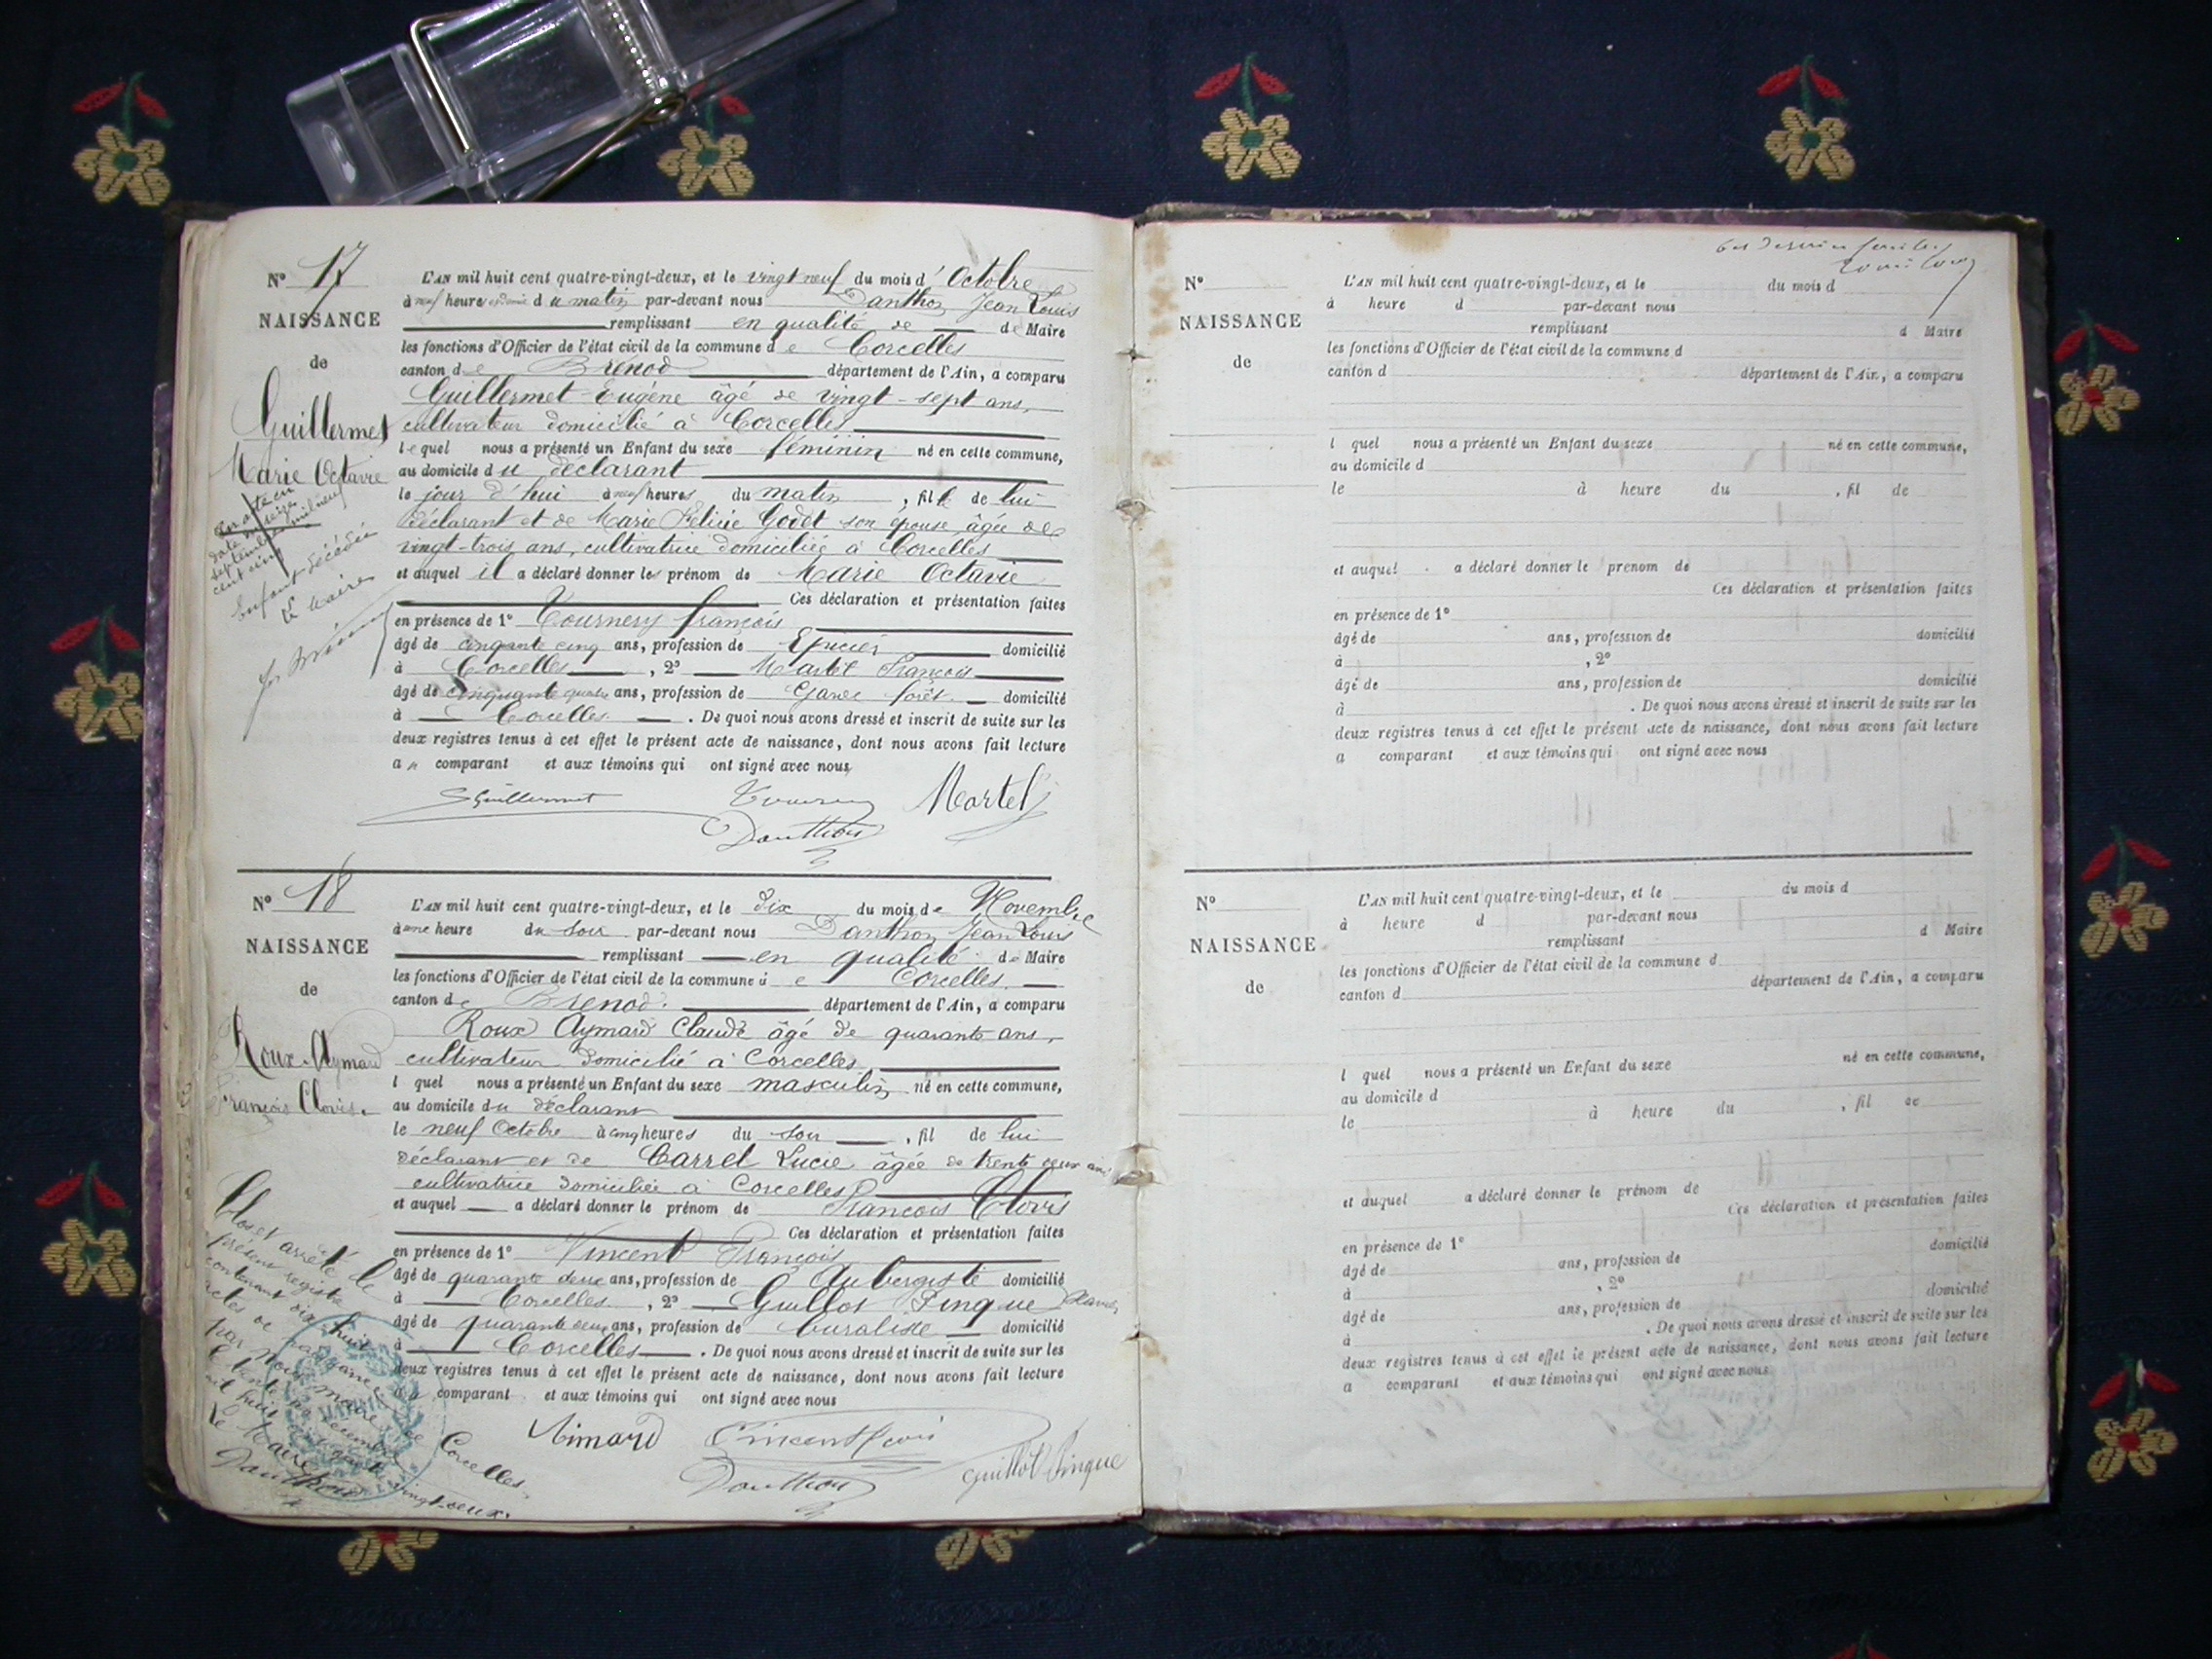 N° 17
NAISSANCE
de
Guillermet
Marie Octavie
enfant décédée
Le Maire
L'AN mil huit cent quatre-vingt-deux, et le vingt neuf du mois d'Octobre
à neuf heure et demie du matin par-devant nous Danthon Jean Louis
remplissant en qualité de de Maire
les fonctions d'Officier de l'état civil de la commune de Corcelles
canton de Brénod département de l'Ain, a comparu
Guillermet Eugène âgé de vingt-sept ans,
cultivateur domicilié à Corcelles
lequel nous a présenté un Enfant du sexe féminin né en cette commune,
au domicile du déclarant
le jour d'hui à neuf heures du matin, fille de lui
déclarant et de Marie Félicie Godet son épouse âgée de
vingt-trois ans, cultivatrice domiciliée à Corcelles
et auquel il a déclaré donner les prénom de Marie Octavie
Ces déclaration et présentation faites
en présence de 1° Tournery françois
âgé de cinquante cinq ans, profession de Epicier domicilié
à Corcelles, 2° Martel François
âgé de cinquante quatre ans, profession de Garde forêt domicilié
à Corcelles. De quoi nous avons dressé et inscrit de suite sur les
deux registres tenus à cet effet le présent acte de naissance, dont nous avons fait lecture
au comparant et aux témoins qui ont signé avec nous
Guillermet Martel
Danthon
N° 18
NAISSANCE
de
Roux-Aymard
François Clovis.
L'AN mil huit cent quatre-vingt-deux, et le dix du mois de Novembre
à une heure du soir par-devant nous Danthon Jean Louis
remplissant en qualité de Maire
les fonctions d'Officier de l'état civil de la commune de Corcelles.
canton de Brenod. département de l'Ain, a comparu
Roux Aymard Claude âgé de quarante ans,
cultivateur domicilié à Corcelles
l quel nous a présenté un Enfant du sexe masculin né en cette commune,
au domicile du déclarant
le neuf Octobre à cinq heures du soir, fil de lui
déclarant et de Carrel Lucie âgée de trente deux ans
cultivatrice domiciliée à Corcelles
et auquel a déclaré donner le prénom de François Clovis
Ces déclaration et présentation faites
en présence de 1° Vincent François
âgé de quarante deux ans, profession de Aubergiste domicilié
à Corcelles, 2° Guillot Pingue
âgé de quarante deux ans, profession de buraliste domicilié
à Corcelles. De quoi nous avons dressé et inscrit de suite sur les
deux registres tenus à cet effet le présent acte de naissance, dont nous avons fait lecture
comparant et aux témoins qui ont signé avec nous
Clos et arrêté le
présent registre
contenant dix huit
actes de naissance
par nous maire de Corcelles
le trente un décembre
mil huit cent quatre vingt-deux.
Le Maire
Danthon
MAIRIE
Aimard Vincent
Danthon Guillot Pingue
N°
NAISSANCE
de
L'AN mil huit cent quatre-vingt-deux, et le du mois d
à heure d par-devant nous
remplissant d Maire
les fonctions d'Officier de l'état civil de la commune d
canton d département de l'Ain, a comparu
l quel nous a présenté un Enfant du sexe né en cette commune,
au domicile d
le à heure du , fil de
et auquel a déclaré donner le prénom de
Ces déclaration et présentation faites
en présence de 1°
âgé de ans, profession de domicilié
à , 2°
âgé de ans, profession de domicilié
à . De quoi nous avons dressé et inscrit de suite sur les
deux registres tenus à cet effet le présent acte de naissance, dont nous avons fait lecture
a comparant et aux témoins qui ont signé avec nous
N°
NAISSANCE
de
L'AN mil huit cent quatre-vingt-deux, et le du mois d
à heure d par-devant nous
remplissant d Maire
les fonctions d'Officier de l'état civil de la commune d
canton d département de l'Ain, a comparu
l quel nous a présenté un Enfant du sexe né en cette commune,
au domicile d
le à heure du , fil de
et auquel a déclaré donner le prénom de
Ces déclaration et présentation faites
en présence de 1°
âgé de ans, profession de domicilié
à , 2°
âgé de ans, profession de domicilié
à . De quoi nous avons dressé et inscrit de suite sur les
deux registres tenus à cet effet le présent acte de naissance, dont nous avons fait lecture
a comparant et aux témoins qui ont signé avec nous